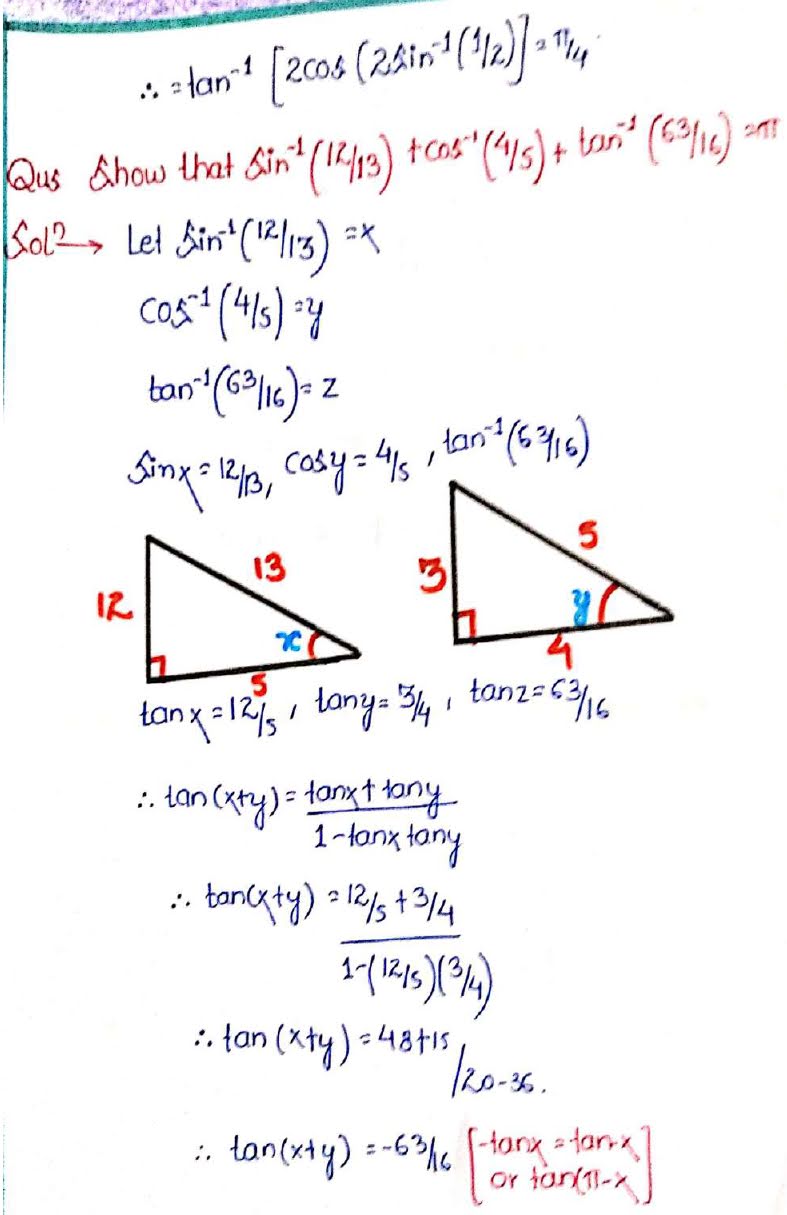 ∴ = tan⁻¹ [2cos (2sin⁻¹(1/2)] = π/4
Qus Show that sin⁻¹(12/13) + cos⁻¹(4/5) + tan⁻¹(63/16) = π
Solⁿ → Let sin⁻¹(12/13) = x
cos⁻¹(4/5) = y
tan⁻¹(63/16) = z
sinx = 12/13, cosy = 4/5, tan⁻¹(63/16)
12 13 x 5
3 5 y 4
tanx = 12/5, tany = 3/4, tanz = 63/16
∴ tan(x+y) = tanx + tany
1 - tanx tany
∴ tan(x+y) = 12/5 + 3/4
1-(12/5)(3/4)
∴ tan(x+y) = 48+15
/20-36.
∴ tan(x+y) = -63/16 [-tanx = tan-x]
or tan(π-x]